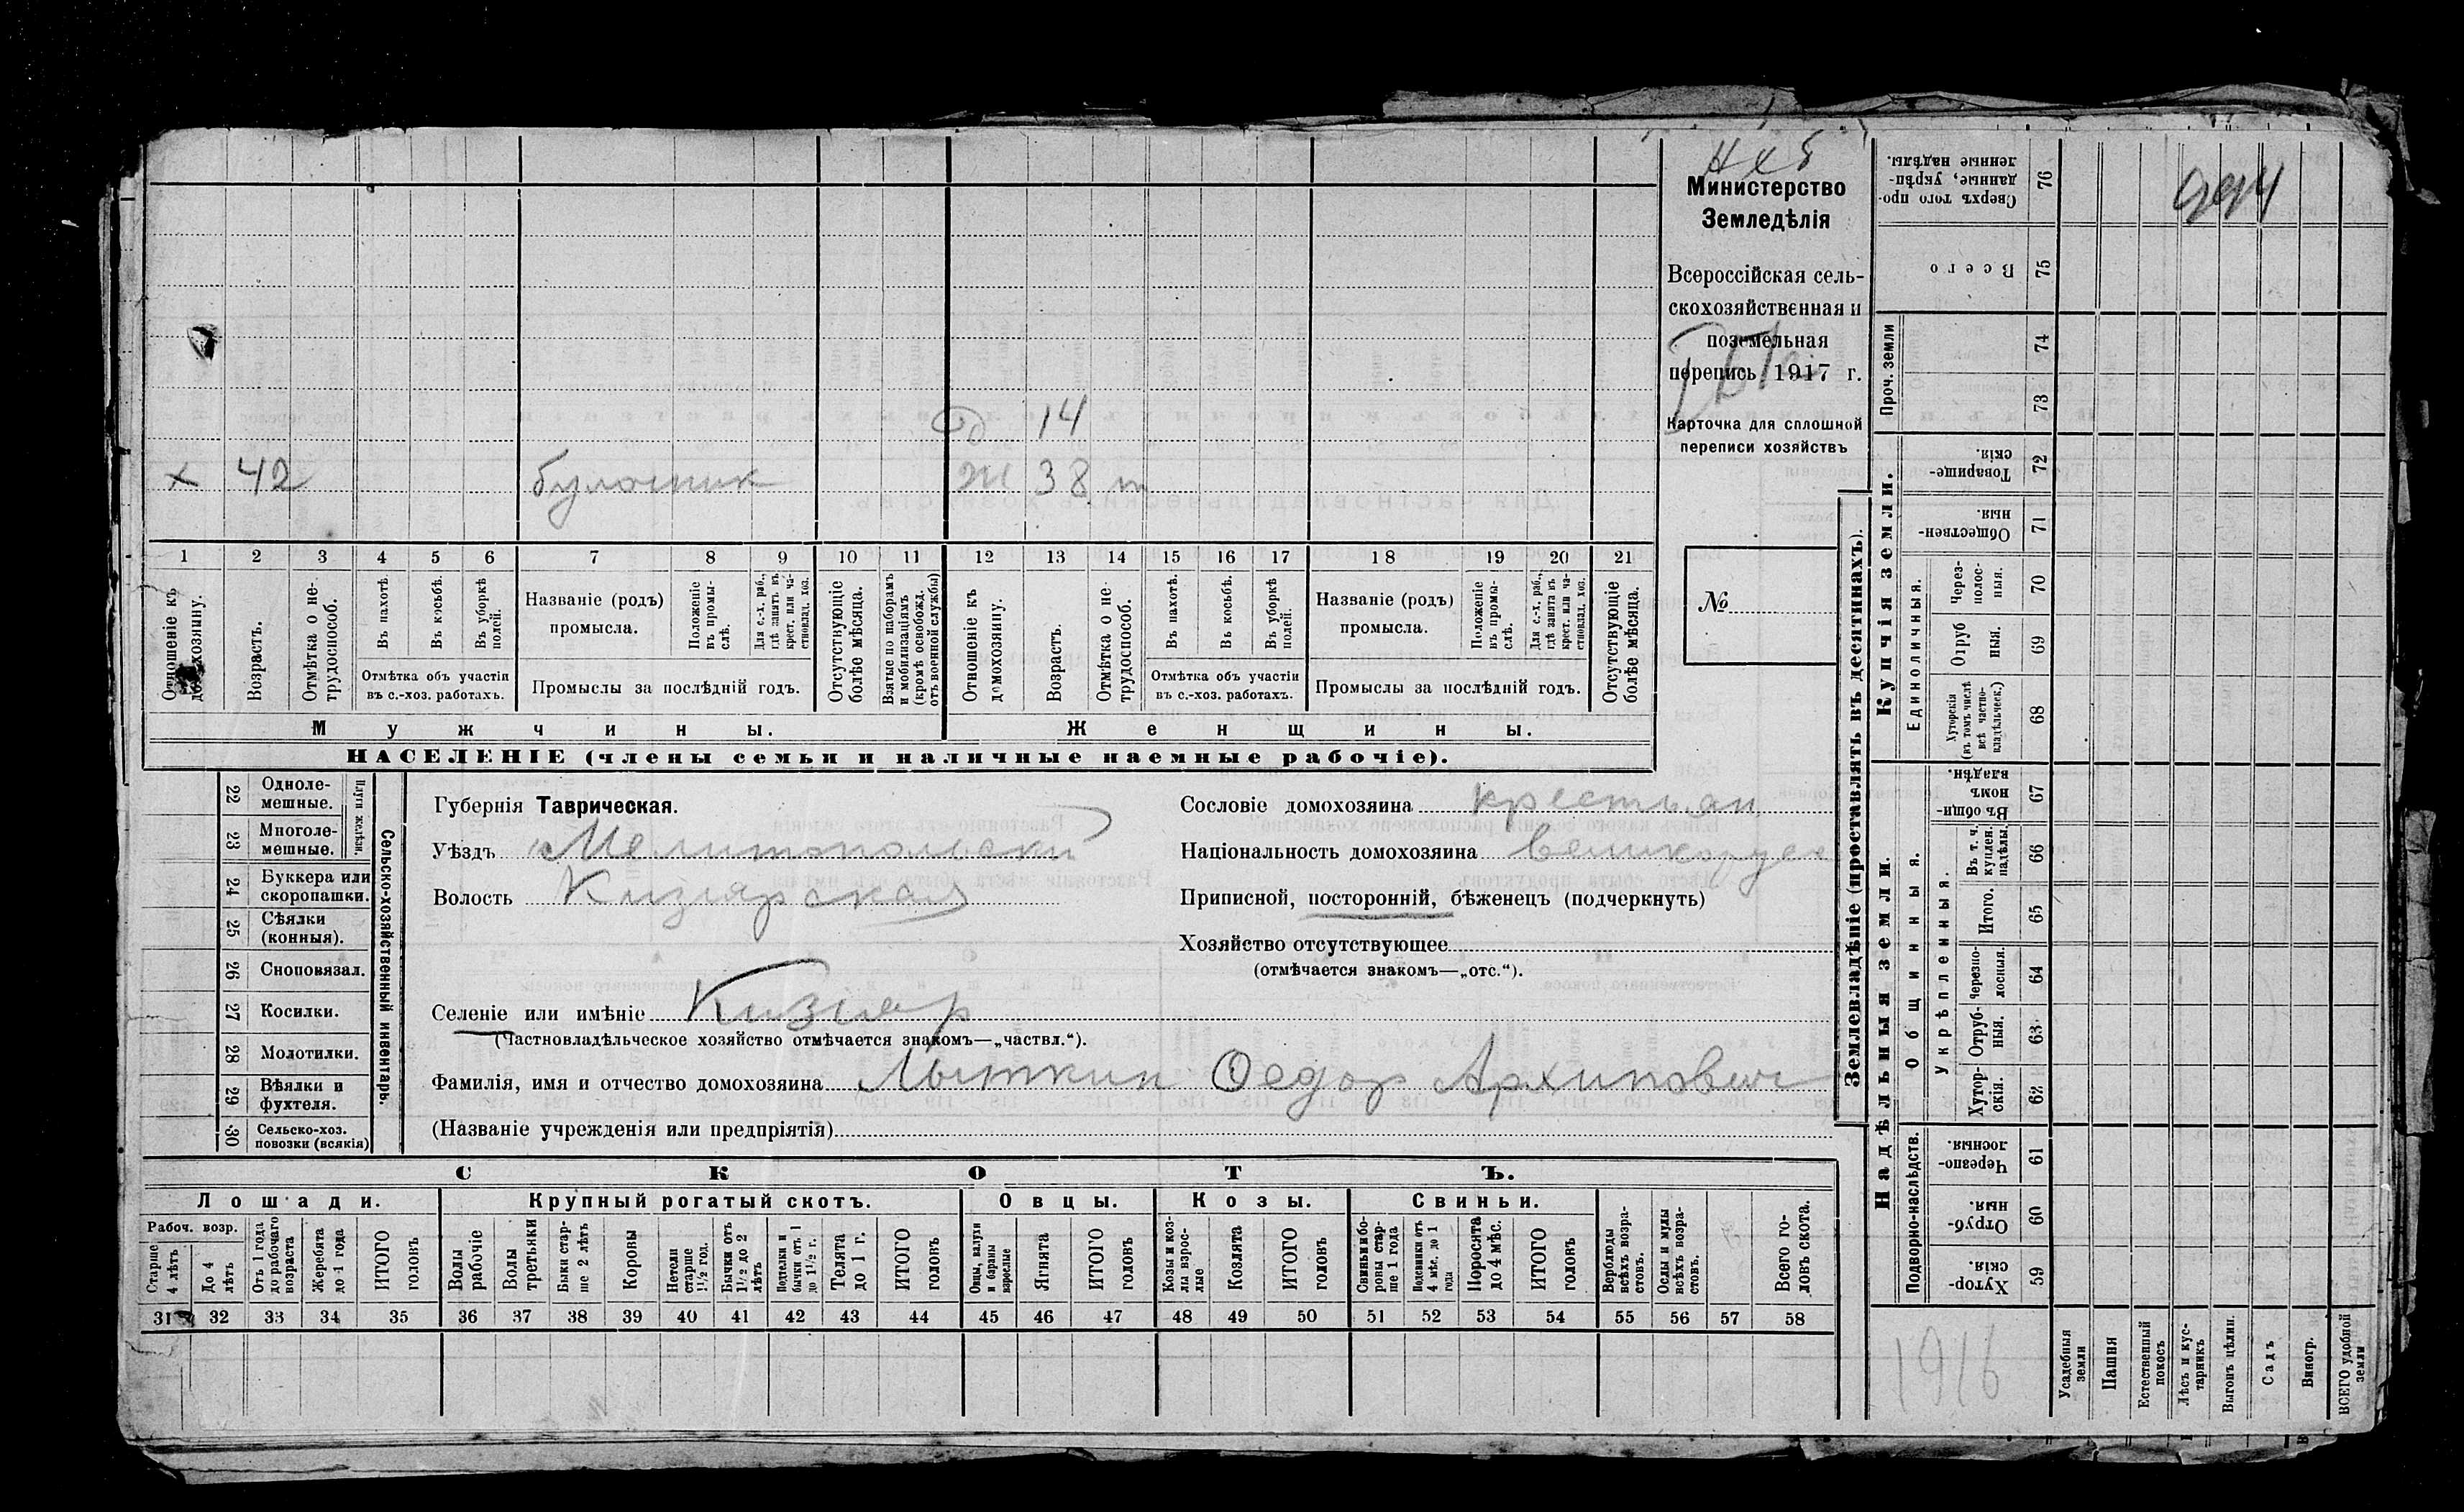 Министерство
Земледѣлія
Всероссійская сель-
скохозяйственная и
поземельная
перепись 1917 г.
Карточка для сплошной
переписи хозяйствъ
№
14
х 42 булочник Ж 38
1 2 3 4 5 6 7 8 9 10 11 12 13 14 15 16 17 18 19 20 21
Отношеніе къ домохозяину.
Возрастъ.
Отмѣтка о не-трудоспособ.
Въ пахотѣ.
Въ косьбѣ.
Въ уборкѣ полей.
Отмѣтка объ участіи
въ с.-хоз. работахъ.
Названіе (родъ)
промысла.
Положеніе въ промы-слѣ.
Для с.-х. раб., гдѣ занятъ въ крест. или ча-стновлад. хоз.
Промыслы за послѣдній годъ.
Отсутствующіе болѣе мѣсяца.
Взятые по наборамъ и мобилизаціямъ (кромѣ освобожд. отъ военной службы)
Отношеніе къ домохозяину.
Возрастъ.
Отмѣтка о не трудоспособ.
Въ пахотѣ.
Въ косьбѣ.
Въ уборкѣ полей.
Отмѣтка объ участіи
въ с.-хоз. работахъ.
Названіе (родъ)
промысла.
Положеніе въ промы-слѣ.
Для с.-х. раб., гдѣ занята въ крест. или ча-стновлад. хоз.
Промыслы за послѣдній годъ.
Отсутствующіе болѣе мѣсяца.
Мужчины.
Женщины.
НАСЕЛЕНІЕ (члены семьи и наличные наемные рабочіе).
Сельско-хозяйственный инвентарь.
Плуги желѣзн.
22 Одноле-мешные.
23 Многоле-мешные.
24 Буккера или скоропашки.
25 Сѣялки (конныя).
26 Сноповязал.
27 Косилки.
28 Молотилки.
29 Вѣялки и фухтеля.
30 Сельско-хоз. повозки (всякія)
Губернія Таврическая.
Уѣздъ Мелитопольски
Волость Кизиярская
Селеніе или имѣніе Кизияр
(Частновладѣльческое хозяйство отмѣчается знакомъ—„частвл.“).
Фамилія, имя и отчество домохозяина Лыткин Ѳедор Архипович
(Названіе учрежденія или предпріятія)
Сословіе домохозяина крестьян
Національность домохозяина великорусс
Приписной, посторонній, бѣженецъ (подчеркнуть)
Хозяйство отсутствующее
(отмѣчается знакомъ—„отс.“).
СКОТЪ.
Лошади.
Крупный рогатый скотъ.
Овцы.
Козы.
Свиньи.
Рабоч. возр.
Старше 4 лѣтъ
До 4 лѣтъ
Отъ 1 года до рабочаго возраста
Жеребята до 1 года
ИТОГО головъ
Волы рабочіе
Волы третьяки
Быки стар-ше 2 лѣтъ
Коровы
Нетели старше 1½ год.
Бычки отъ 1½ до 2 лѣтъ
Подтелки и бычки отъ 1 до 1½ г.
Телята до 1 г.
ИТОГО головъ
Овцы, валухи и бараны взрослые
Ягнята
ИТОГО головъ
Козы и коз-лы взрос-лые
Козлята
ИТОГО головъ
Свиньи и бо-ровы стар-ше 1 года
Подсвинки отъ 4 мѣс. до 1 года
Поросята до 4 мѣс.
ИТОГО головъ
Верблюды всѣхъ возра-стовъ.
Ослы и мулы всѣхъ возра-стовъ.
Всего го-ловъ скота.
31 32 33 34 35 36 37 38 39 40 41 42 43 44 45 46 47 48 49 50 51 52 53 54 55 56 57 58
Землевладѣніе (проставлять въ десятинахъ).
Купчія земли.
Надѣльныя земли.
Проч. земли
Единоличныя.
Общинныя.
Укрѣпленныя.
Подворно-наслѣдств.
76 Сверхъ того про-данные, укрѣп-ленные надѣлы.
75 Всего
74
73
72 Товарище-скія.
71 Обществен-ныя.
70 Через-полос-ныя.
69 Отруб ныя.
68 Хуторскія (въ томъ числѣ всѣ частно-владѣльческ.)
67 Въ общи-номъ владѣн.
66 Въ т. ч. куплен. надѣлы.
65 Итого.
64 Черезпо-лосныя.
63 Отруб-ныя.
62 Хутор-скія.
61 Черезпо-лосныя.
60 Отруб-ныя.
59 Хутор-скія.
1916
Усадебныя земли
Пашня
Естественный покосъ
Лѣсъ и кус-тарникъ
Выгонъ цѣлин.
Садъ
Виногр.
ВСЕГО удобной земли